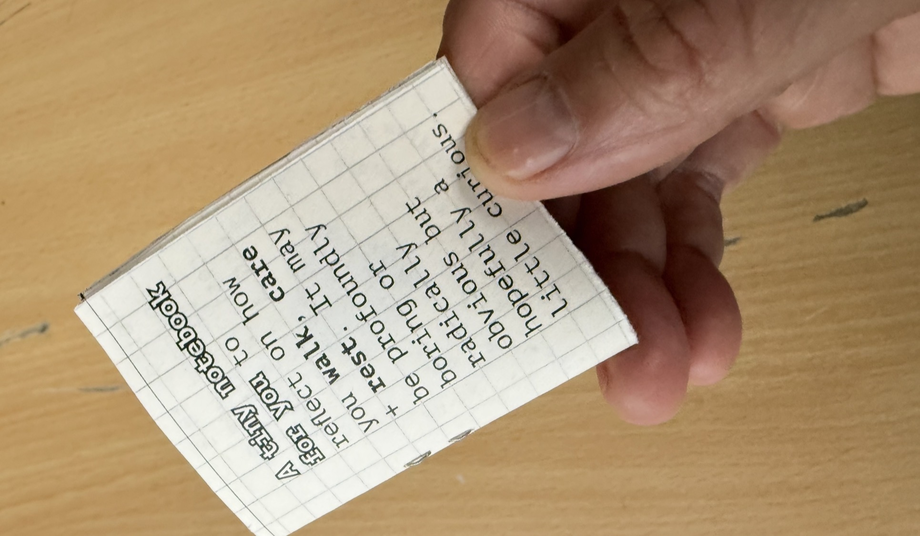 A tiny notebook
for you to how
reflect on care
you walk, may
+ rest. It
be profoundly
boring or
radically but
obvious
hopefully a
little curious.